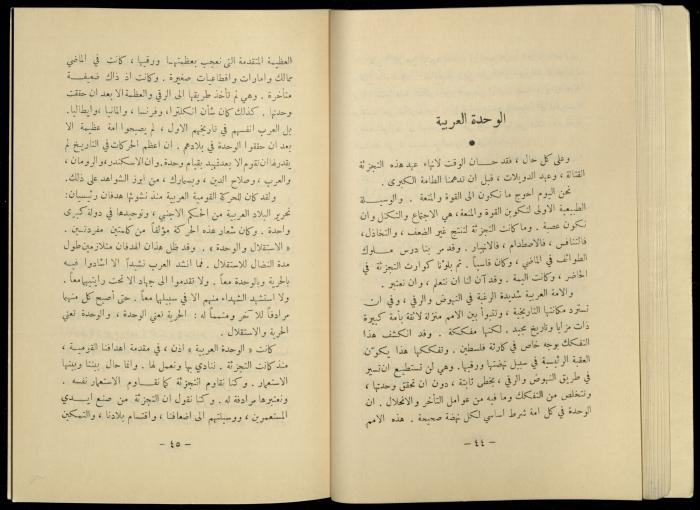 الوحدة العربية
وعلى كل حال ، فقد حـــان الوقت لانهاء عهد هذه التجزئة
القتالة ، وعهد الدويلات ، قبل ان تدهمنا الطامة الكبرى .
نحن اليوم احوج ما نكون الى القوة والمنعة . والوسيـــلة
الطبيعية الاولى لتكوين القوة والمنعة، هي الاجتماع والتكتل وان
نكون عصبة . وما كانت التجزئة لتنتج غير الضعف ، والتخاذل،
فالتنافس ، فالاصطدام ، فالانهيار . وقد مر بنا درس ملـــوك
الطوائف في الماضي ، وكان قاسياً . ثم بلونا كوارث التجزئة في
الحاضر ، وكانت اليمة . وقد آن لنا ان نتعظ ، وان نعتبر .
والامة العربية شديدة الرغبة في النهوض والرقي ، وفي ان
تسترد مكانتها التاريخية ، وتتبوأ بين الامم منزلة لائقة بأمة كبيرة
ذات مزايا وتاريخ مجيد . لكنها مفككة . وقد انكشف هذا
التفكك بوجه خاص في كارثة فلسطين . وتفككها هذا يكوّن
العقبة الرئيسية في سبيل نهضتها ورقيها. وهي لن تستطيع ان تسير
في طريق النهوض والرقي ، بخطى ثابتة ، دون ان تحقق وحدتها ،
وتتخلص من التفكك وما فيه من عوامل التأخر والانحلال . ان
الوحدة في كل امة شرط اساسي لكل نهضة صحيحة . هذه الامم
- ٤٤ -
العظيمة المتقدمة التي نعجب بعظمتهـا ورقيها ، كانت في الماضي
ممالك وامارات واقطاعيات صغيرة . وكانت اذ ذاك ضعيفــة
متأخرة . وهي لم تأخذ طريقها الى الرقي والعظمة الا بعد ان حققت
وحدتها . كذلك كان شأن انكلترا، وفرنسا ، والمانيا ،وايطاليا.
بل العرب انفسهم في تاريخهم الاول ، لم يصبحوا امة عظيمة الا
بعد ان حققوا الوحدة في بلادهم . ان اعظم الحركات في التاريخ لم
يقدر لها ان تقوم الا بعد تمهيد بقيام وحدة. وان الاسكندر،والرومان ،
والعرب ، وصلاح الدين ، وبسمارك ، من ابرز الشواهد على ذلك.
ولقد كان للحركة القومية العربية منذ نشوئها هدفان رئيسيان:
تحرير البلاد العربية من الحكم الاجنبي ، وتوحيدها في دولة كبرى
واحدة . وكان شعار هذه الحركة مؤلفاً من كلمتين مفردتـين .
« الاستقلال والوحدة » . وقد ظل هذان الهدفان متلازمين طول
مدة النضال للاستقلال . فما انشد العرب نشيداً الا اشادوا فيــه
بالحرية وبالوحدة معاً . ولا تقدموا الى جهاد الا تحت رايتيهما معاً .
ولا استشهد الشهداء منهم الا في سبيلهما معاً . حتى أصبح كل منهما
مرادفاً للآخر ومتمماً له : الحرية تعني الوحدة ، والوحدة تعني
الحرية والاستقلال .
كانت « الوحدة العربية » اذن ، في مقدمة اهدافنا القوميـة ،
منذ كانت التجزئة . ننادي بها ونعمل لها . وانما حال بيننا وبينها
الاستعمار . وكنا نقاوم التجزئة كما نقـــاوم الاستعمار نفسه .
ونعتبرها مرادفة له . وكنا نقول ان التجزئة من صنع ايــدي
المستعمرين ، ووسيلتهم الى اضعافنا ، واقتسام بلادنا ، والتمكين
- ٤٥ -